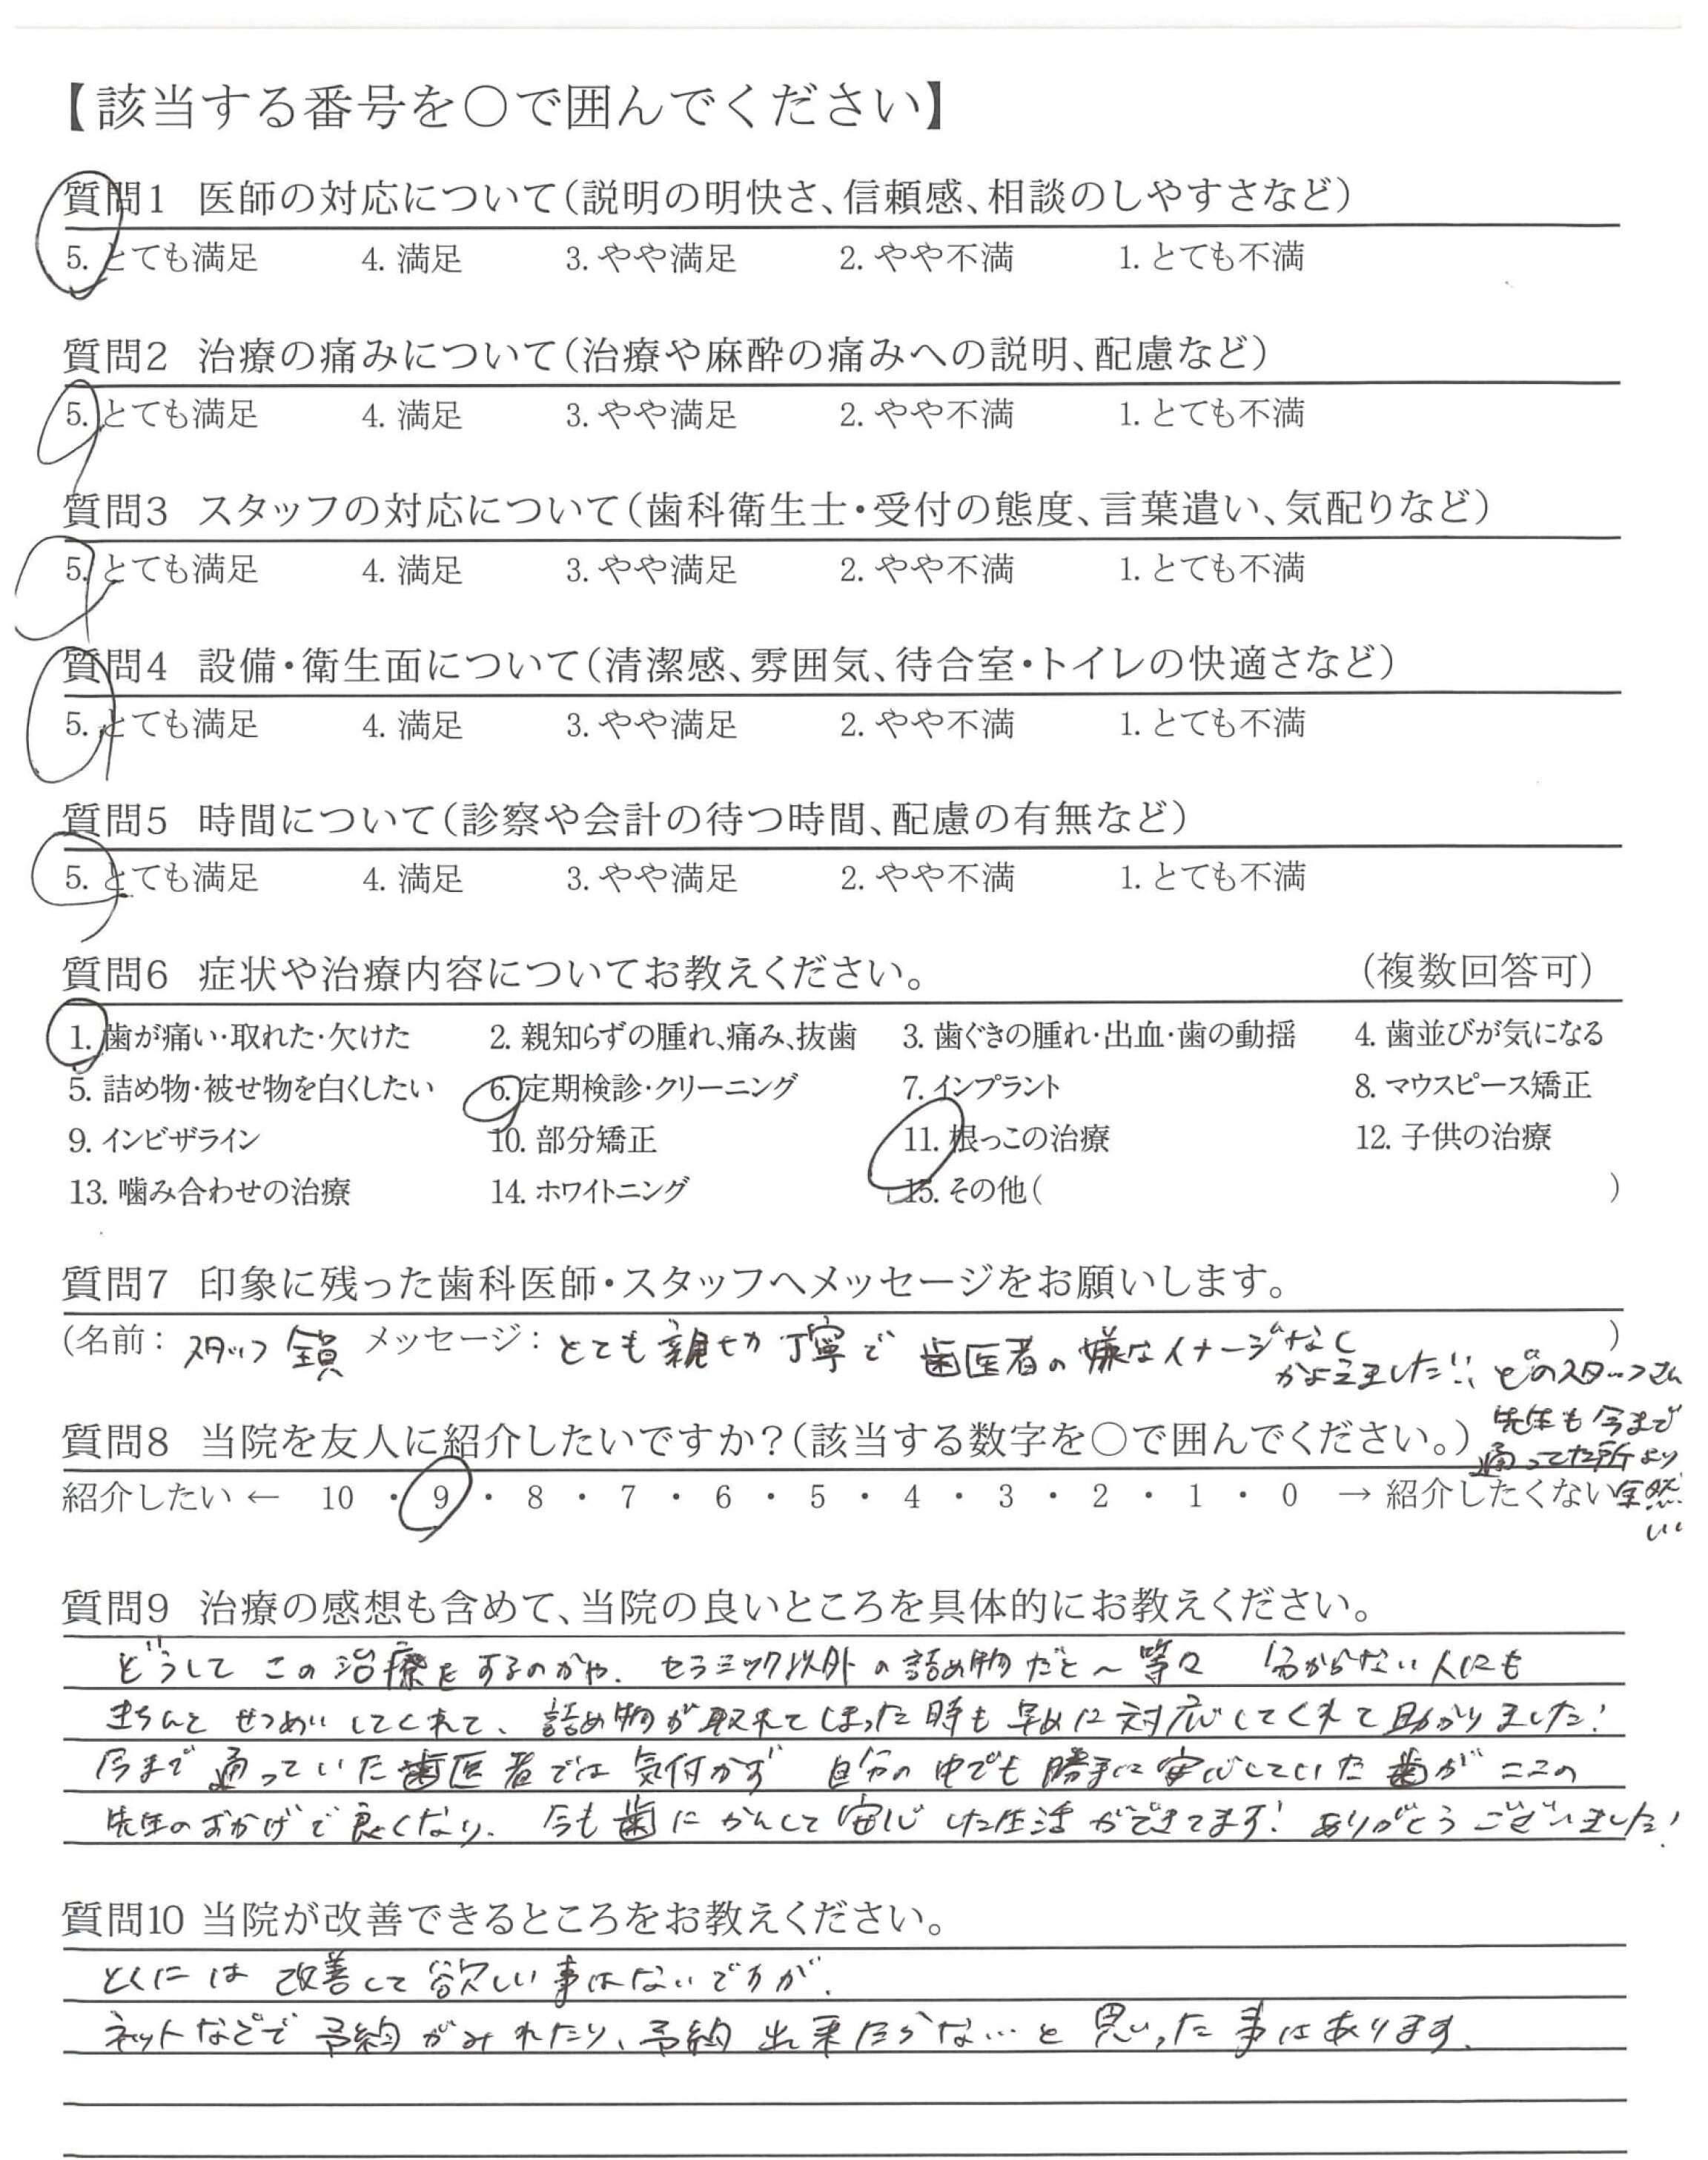 【該当する番号を〇で囲んでください】
質問1 医師の対応について(説明の明快さ、信頼感、相談のしやすさなど)
5. とても満足 4. 満足 3. やや満足 2. やや不満 1. とても不満
質問2 治療の痛みについて(治療や麻酔の痛みへの説明、配慮など)
5. とても満足 4. 満足 3. やや満足 2. やや不満 1. とても不満
質問3 スタッフの対応について(歯科衛生士・受付の態度、言葉遣い、気配りなど)
5. とても満足 4. 満足 3. やや満足 2. やや不満 1. とても不満
質問4 設備・衛生面について(清潔感、雰囲気、待合室・トイレの快適さなど)
5. とても満足 4. 満足 3. やや満足 2. やや不満 1. とても不満
質問5 時間について(診察や会計の待つ時間、配慮の有無など)
5. とても満足 4. 満足 3. やや満足 2. やや不満 1. とても不満
質問6 症状や治療内容についてお教えください。 (複数回答可)
1. 歯が痛い・取れた・欠けた 2. 親知らずの腫れ、痛み、抜歯 3. 歯ぐきの腫れ・出血・歯の動揺 4. 歯並びが気になる
5. 詰め物・被せ物を白くしたい 6. 定期検診・クリーニング 7. インプラント 8. マウスピース矯正
9. インビザライン 10. 部分矯正 11. 根っこの治療 12. 子供の治療
13. 噛み合わせの治療 14. ホワイトニング 15. その他( )
質問7 印象に残った歯科医師・スタッフへメッセージをお願いします。
(名前: スタッフ 全員 メッセージ: とても親切丁寧で 歯医者の嫌なイメージなく )
かよえました!! どのスタッフさん
先生も今まで
通ってた所より
全然
いい
質問8 当院を友人に紹介したいですか?(該当する数字を〇で囲んでください。)
紹介したい ← 10 ・ 9 ・ 8 ・ 7 ・ 6 ・ 5 ・ 4 ・ 3 ・ 2 ・ 1 ・ 0 → 紹介したくない
質問9 治療の感想も含めて、当院の良いところを具体的にお教えください。
どうして この治療をするのかや、セラミック以外の詰め物だと〜等々 分からない人にも
きちんと せつめいしてくれて、詰め物が取れてしまった時も早めに対応してくれて助かりました!
今まで通っていた歯医者では気付かず 自分の中でも勝手に安心していた歯がここの
先生のおかげで良くなり、今も歯にかんして安心した生活ができてます! ありがとうございました!
質問10 当院が改善できるところをお教えください。
とくには 改善して欲しい事はないですが、
ネットなどで予約がみれたり、予約出来たらな…と思った事はあります。